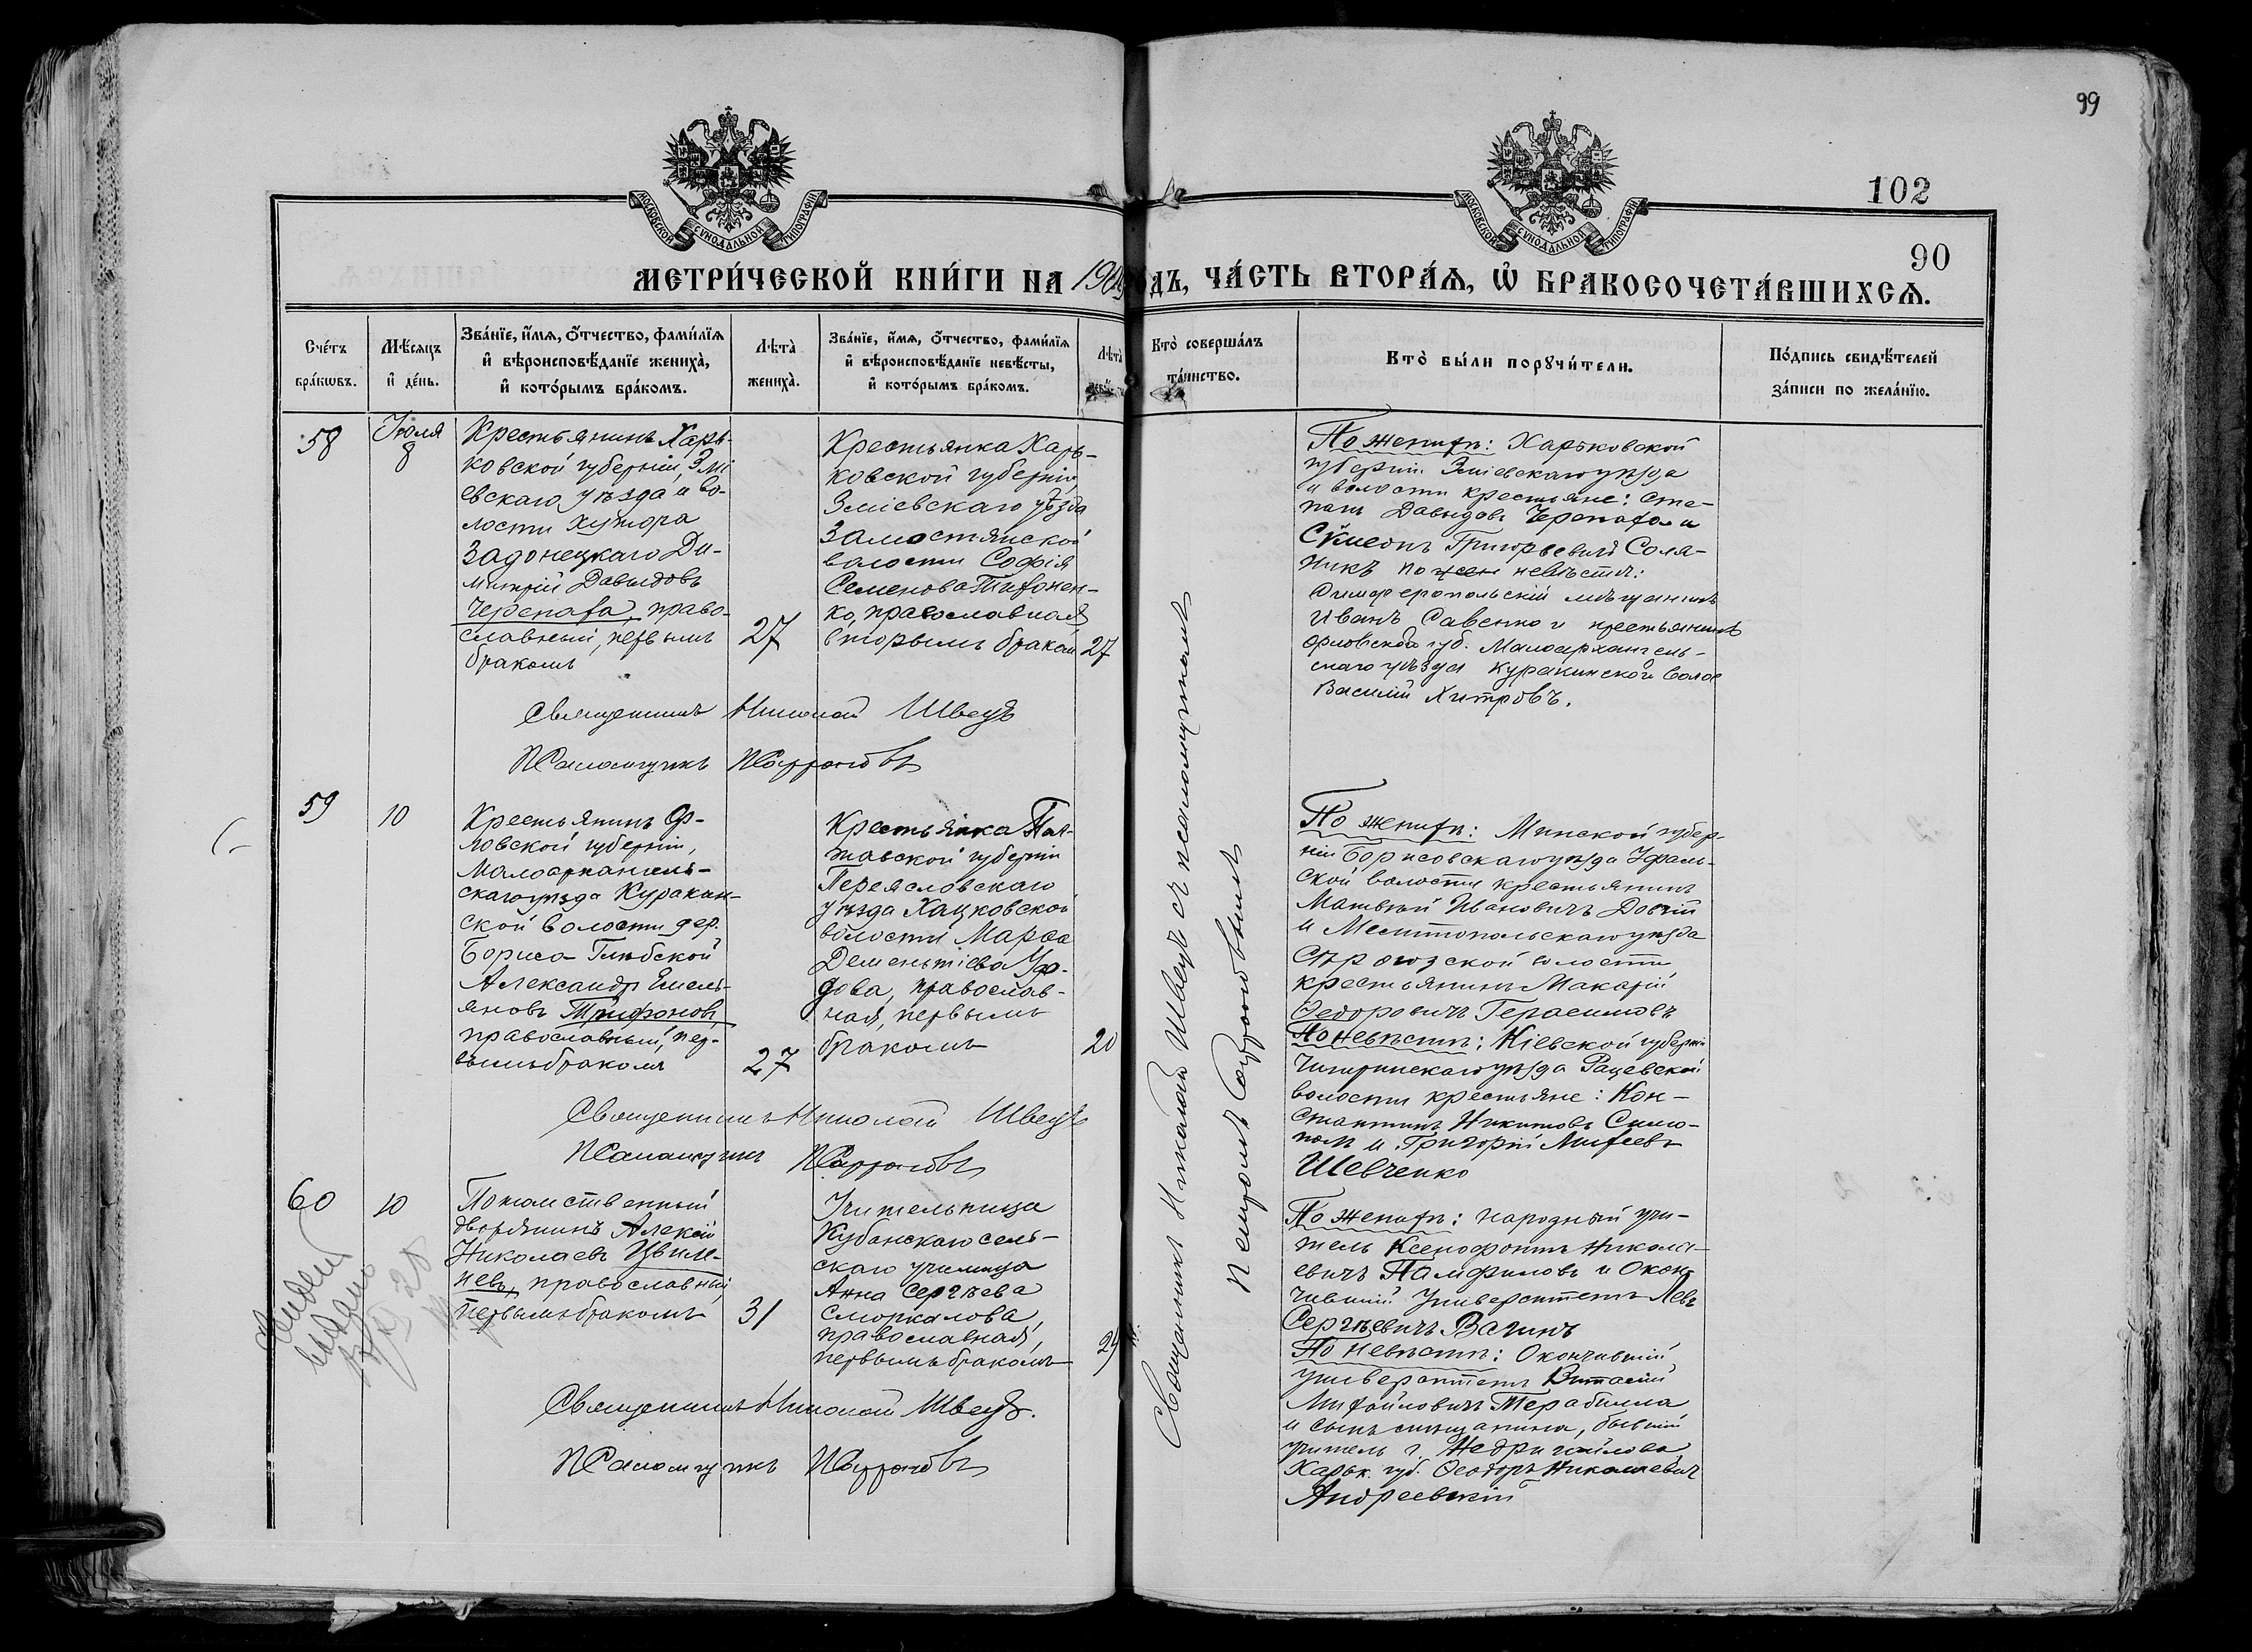 99
102
90
МОСКОВСКОЙ СѴНОДАЛЬНОЙ ТИПОГРАФІИ
МОСКОВСКОЙ СѴНОДАЛЬНОЙ ТИПОГРАФІИ
МЕТРИ́ЧЕСКОЙ КНИ́ГИ НА 190 ОДЪ, ЧА́СТЬ ВТОРА́Ѧ, Ѽ БРАКОСОЧЕТА́ВШИХСѦ.
Сче́тъ
бра́кѡвъ.
Мѣ́сѧцъ
и҆ де́нь.
Зва́нїе, и҆́мѧ, ѻ҆́тчество, фами́лїѧ
и҆ вѣроисповѣ́данїе жениха̀,
и҆ кото́рымъ бра́комъ.
Лѣта̀
жениха̀.
Зва́нїе, и҆́мѧ, ѻ҆́тчество, фами́лїѧ
и҆ вѣроисповѣ́данїе невѣ́сты,
и҆ кото́рымъ бра́комъ.
Лѣта̀
Кто̀ соверша́лъ
та́инство.
Кто̀ бы́ли порꙋчи́тели.
По́дпись свидѣ́телей
за́писи по жела́нїю.
58
Іюля
8
Крестьянинъ Харь-
ковской губерніи, Змі
евскаго уѣзда и во-
лости хутора
Задонецкаго Ди-
митрій Давыдовъ
Черепаха, право-
славный, первымъ
бракомъ
27
Крестьянка Харь-
ковской губерніи,
Зміевскаго уѣзда
Замостянской
волости Софія
Семенова Тихонен-
ко, православная
вторымъ бракомъ
27
По женихѣ: Харьковской
губерніи Зміевскаго уѣзда
и волости крестьяне: Сте-
панъ Давыдовъ Черепаха и
Сѵмеонъ Григорьевичъ Соля-
никъ по невѣстѣ:
Симферопольскій мѣщанинъ
Иванъ Савенко и крестьянинъ
Орловской губ. Малоархангель-
скаго уѣзда Куракинской волос
Василій Хитровъ.
Священникъ Николай Швецъ
Псаломщикъ ПСафроновъ
59
10
Крестьянинъ Ор-
ловской губерніи,
Малоархангель-
скаго уѣзда Куракин-
ской волости дер.
Бориса-Глѣбской
Александръ Емель-
яновъ Трифоновъ,
православный, пер-
вымъ бракомъ
27
Крестьянка Пол-
тавской губерніи
Переясловскаго
уѣзда Хацковской
волости Марѳа
Дементіева Удо-
дова, православ-
ная, первымъ
бракомъ
20
По женихѣ: Минской губер-
ніи Борисовскаго уѣзда
ской волости крестьянинъ
Матвѣй Ивановичъ Довгій
и Мелитопольскаго уѣзда
Сѣрогозской волости
крестьянинъ Макарій
Ѳедоровичъ Герасимовъ
По невѣстѣ: Кіевской губерніи
Чигиринскаго уѣзда Рацевской
волости крестьяне: Кон-
стантинъ Никитовъ Симо-
и Григорій Михеевъ
Шевченко
Священникъ Николай Швецъ
Псаломщикъ ПСафроновъ
60
10
Потомственный
дворянинъ Алексій
Николаевъ Цвиле-
невъ, православный
первымъ бракомъ
31
Учительница
Кубанскаго сель-
скаго училища
Анна Сергѣева
Сморкалова,
православная,
первымъ бракомъ
По женихѣ: народный учи-
тель Ксенофонтъ Никола-
евичъ Памфиловъ и Окон-
чившій Университетъ Левъ
Сергѣевичъ Вагинъ
По невѣстѣ: Окончившій
университетъ Виталій
Михайловичъ Терабилла
и сынъ мѣщанина, бывшій
учитель г. Недригайлова
Харьк. губ. Ѳеодоръ Николаевичъ
Андреевскій
Священникъ Николай Швецъ.
Псаломщикъ ПСафроновъ
Священникъ Николай Швецъ съ псаломщикомъ
Петромъ Сафроновымъ